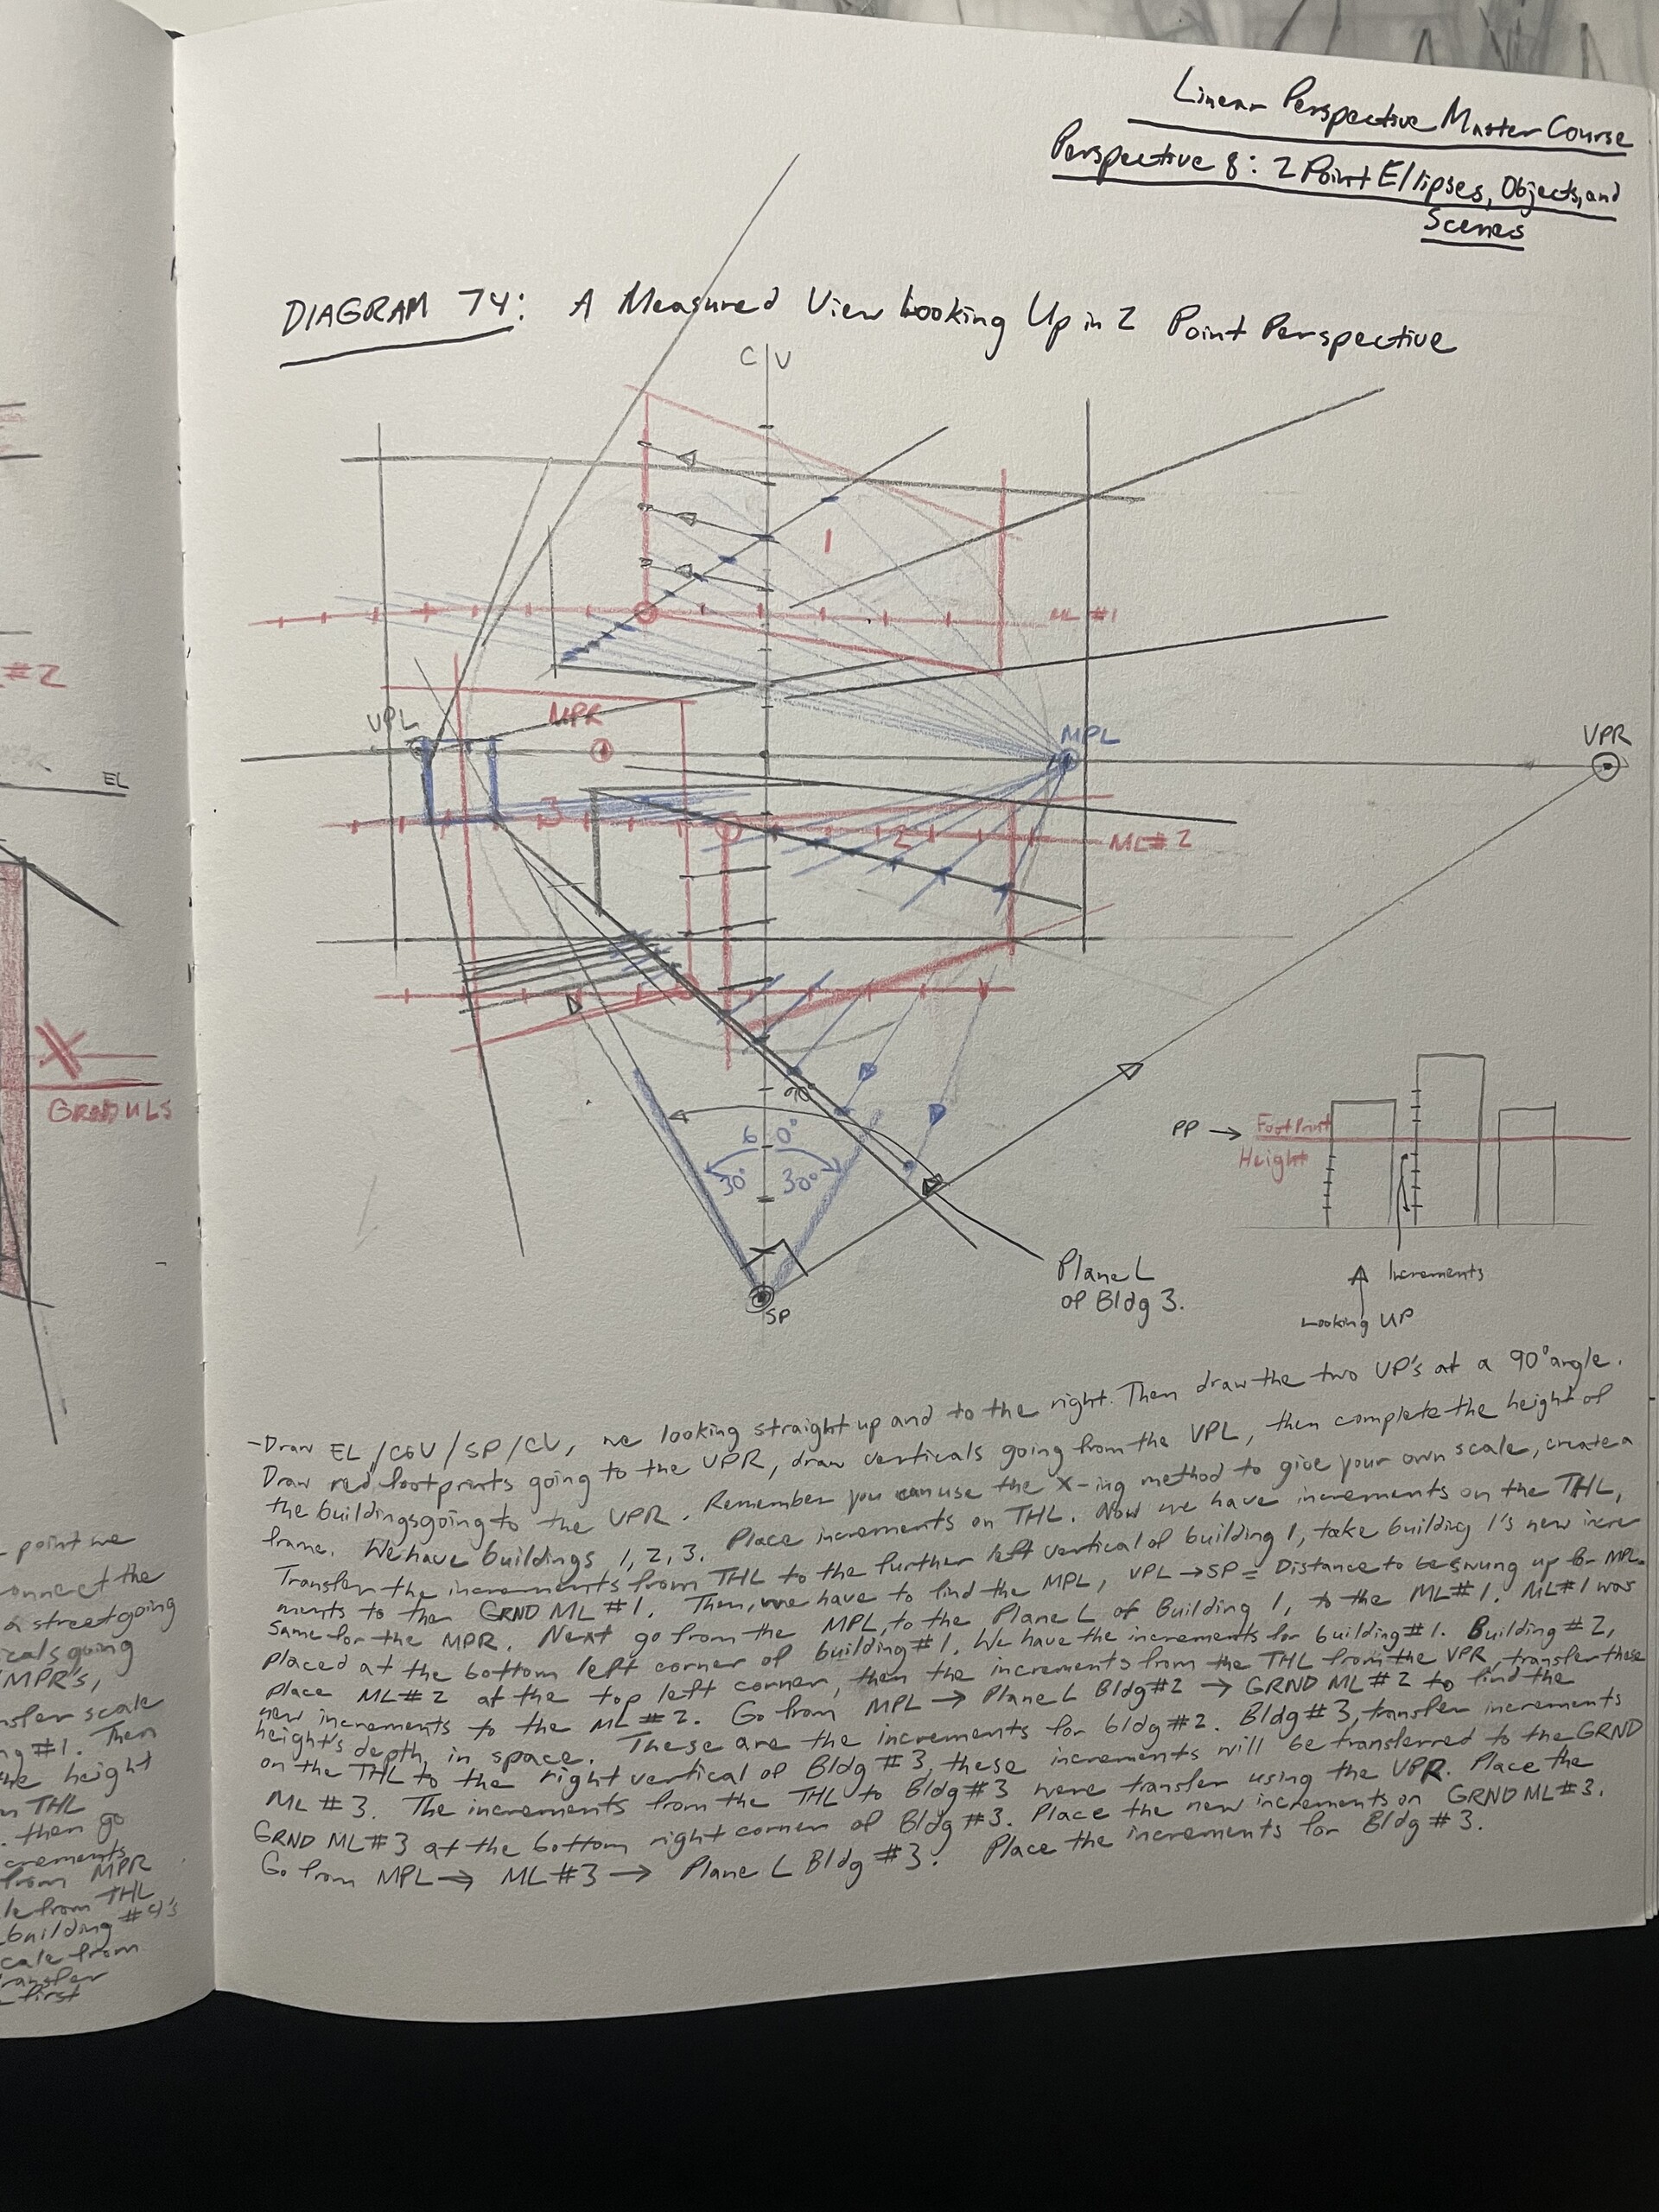 Linear Perspective Master Course
Perspective 8: 2 Point Ellipses, Objects, and
Scenes
DIAGRAM 74: A Measured View Looking Up in 2 Point Perspective
C V
1
ML #1
#2
VPL
MPR
MPL
VPR
EL
3
2
ML #2
X
GRND MLS
90°
60°
30° 30°
PP → Foot Print
Height
SP
Plane L
of Bldg 3.
Increments
Looking UP
-Draw EL/COV/SP/CV, we looking straight up and to the right. Then draw the two VP's at a 90° angle.
Draw red footprints going to the VPR, draw verticals going from the VPL, then complete the height of
the buildings going to the VPR. Remember you can use the X-ing method to give your own scale, create a
frame. We have buildings 1, 2, 3. Place increments on THL. Now we have increments on the THL,
Transfer the increments from THL to the further left vertical of building 1, take building 1's new incre
ments to the GRND ML #1. Then, we have to find the MPL, VPL → SP = Distance to be swung up for MPL.
Same for the MPR. Next go from the MPL, to the Plane L of Building 1, to the ML #1. ML #1 was
placed at the bottom left corner of building #1. We have the increments for building #1. Building #2,
Place ML #2 at the top left corner, then the increments from the THL from the VPR, transfer these
new increments to the ML #2. Go from MPL → Plane L Bldg #2 → GRND ML #2 to find the
height's depth in space. These are the increments for bldg #2. Bldg #3, transfer increments
on the THL to the right vertical of Bldg #3, these increments will be transferred to the GRND
ML #3. The increments from the THL to Bldg #3 were transfer using the VPR. Place the
GRND ML #3 at the bottom right corner of Bldg #3. Place the new increments on GRND ML #3.
Go from MPL → ML #3 → Plane L Bldg #3. Place the increments for Bldg #3.
point we
onnect the
a street going
icals going
MPR's,
nsfer scale
ng #1. Then
the height
m THL
. then go
crements
from MPR
le from THL
building #4's
cale from
ransfer
first